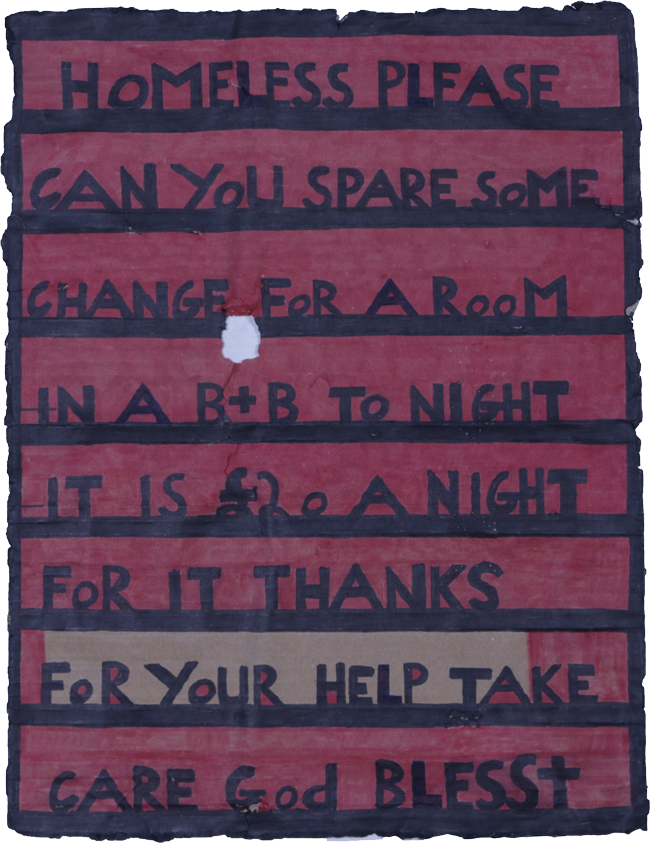 HOMELESS PLEASE
CAN YOU SPARE SOME
CHANGE FOR A ROOM
IN A B+B TO NIGHT
IT IS £20 A NIGHT
FOR IT THANKS
FOR YOUR HELP TAKE
CARE God BLESS†